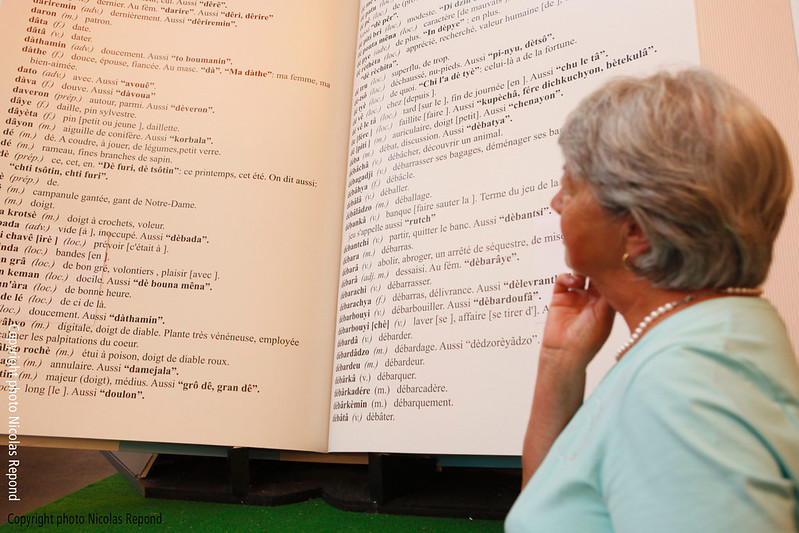 dariremin (adv.) dernièrement. Aussi “dêriremin”.
daron (m.) patron.
dâta (f.) date.
dâtâ (v.) dater.
dàthamin (adv.) doucement. Aussi “to bounamin”.
dàthe (f.) douce, épouse, fiancée. Au masc. “dà”. “Ma dàthe”: ma femme, ma
bien-aimée.
dato (adv.) avec. Aussi “avouê”.
dàva (f.) douve. Aussi “dàvoua”
daveron (prép.) autour, parmi. Aussi “déveron”.
dâye (f.) daille, pin sylvestre.
dâyèta (f.) pin [petit ou jeune ], daillette.
dâyon (m.) aiguille de conifère. Aussi “korbala”.
dé (m.) dé. A coudre, à jouer, de légumes,petit verre.
dé (m.) rameau, fines branches de sapin.
(prép.) ce, cet, en. “Dè furi, dè tsôtin”: ce printemps, cet été. On dit aussi:
“chti tsôtin, chti furi”.
(prép.) de.
(m.) campanule gantée, gant de Notre-Dame.
(m.) doigt.
krotsè (m.) doigt à crochets, voleur.
(adv.) vide [à ], inoccupé. Aussi “dèbada”.
chavê [irè ] (loc.) prévoir [c'était à ].
(loc.) bandes [en ].
grâ (loc.) de bon gré, volontiers , plaisir [avec ].
keman (loc.) docile. Aussi “dè bouna mêna”.
(loc.) de bonne heure.
de lé (loc.) de ci de là.
(loc.) doucement. Aussi “dàthamin”.
(m.) digitale, doigt de diable. Plante très vénéneuse, employée
calmer les palpitations du coeur.
rochè (m.) étui à poison, doigt de diable roux.
(m.) annulaire. Aussi “damejala”.
(m.) majeur (doigt), médius. Aussi “grô dê, gran dê”.
(loc.) long [le ]. Aussi “doulon”.
“dê pêr”.
(loc.) modeste.
(loc.) caractère [de mauvais
de plus. “In dèpye”: en plus.
(loc.) apprécié, recherché, valeur humaine [de
(loc.) superflu, de trop.
(loc.) déchaussé, nu-pieds. Aussi “pi-nyu, dètsô”.
(loc.) de quoi. “Chi l'a dè tyè”: celui-là a de la fortune.
(loc.) chez [depuis ].
(loc.) tard [sur le ], fin de journée [en ]. Aussi “chu le tâ”.
(loc.) faillite [faire ]. Aussi “kupèchâ, fére dichkuchyon, bètekulâ”.
(m.) auriculaire, doigt [petit]. Aussi “chenayon”.
(m.) débat, discussion. Aussi “dèbatya”.
(v.) débâcher, découvrir un animal.
(v.) débarrasser ses bagages, déménager ses
(f.) débâcle.
(v.) déballer.
(m.) déballage.
(v.) banque [faire sauter la ]. Terme du jeu de la
jeu s'appelle aussi “rutch”
(v.) partir, quitter le banc. Aussi “dèbantsi”.
dèbara (m.) débarras.
(v.) abolir, abroger, un arrêté de séquestre, de mise
(adj. m.) dessaisi. Au fém. “dèbarâye”.
dèbarachi (v.) débarrasser.
dèbarachya (f.) débarras, délivrance. Aussi
dèbarbouyi (v.) débarbouiller. Aussi “dèbardoufâ”.
dèbarbouyi [chè] (v.) laver [se ], affaire [se tirer d'].
dèbardâ (v.) débarder.
dèbardâdzo (m.) débardage. Aussi “dèdzorèyâdzo”.
dèbardeu (m.) débardeur.
dèbarkâ (v.) débarquer.
dèbarkadére (m.) débarcadère.
dèbarkèmin (m.) débarquement.
dèbâtâ (v.) débâter.
Copyright photo Nicolas Repond
Copyright photo Nicolas Repond